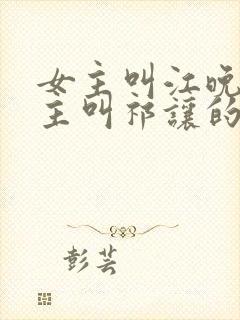 女主叫江晚
主叫祁讓的
彭芸